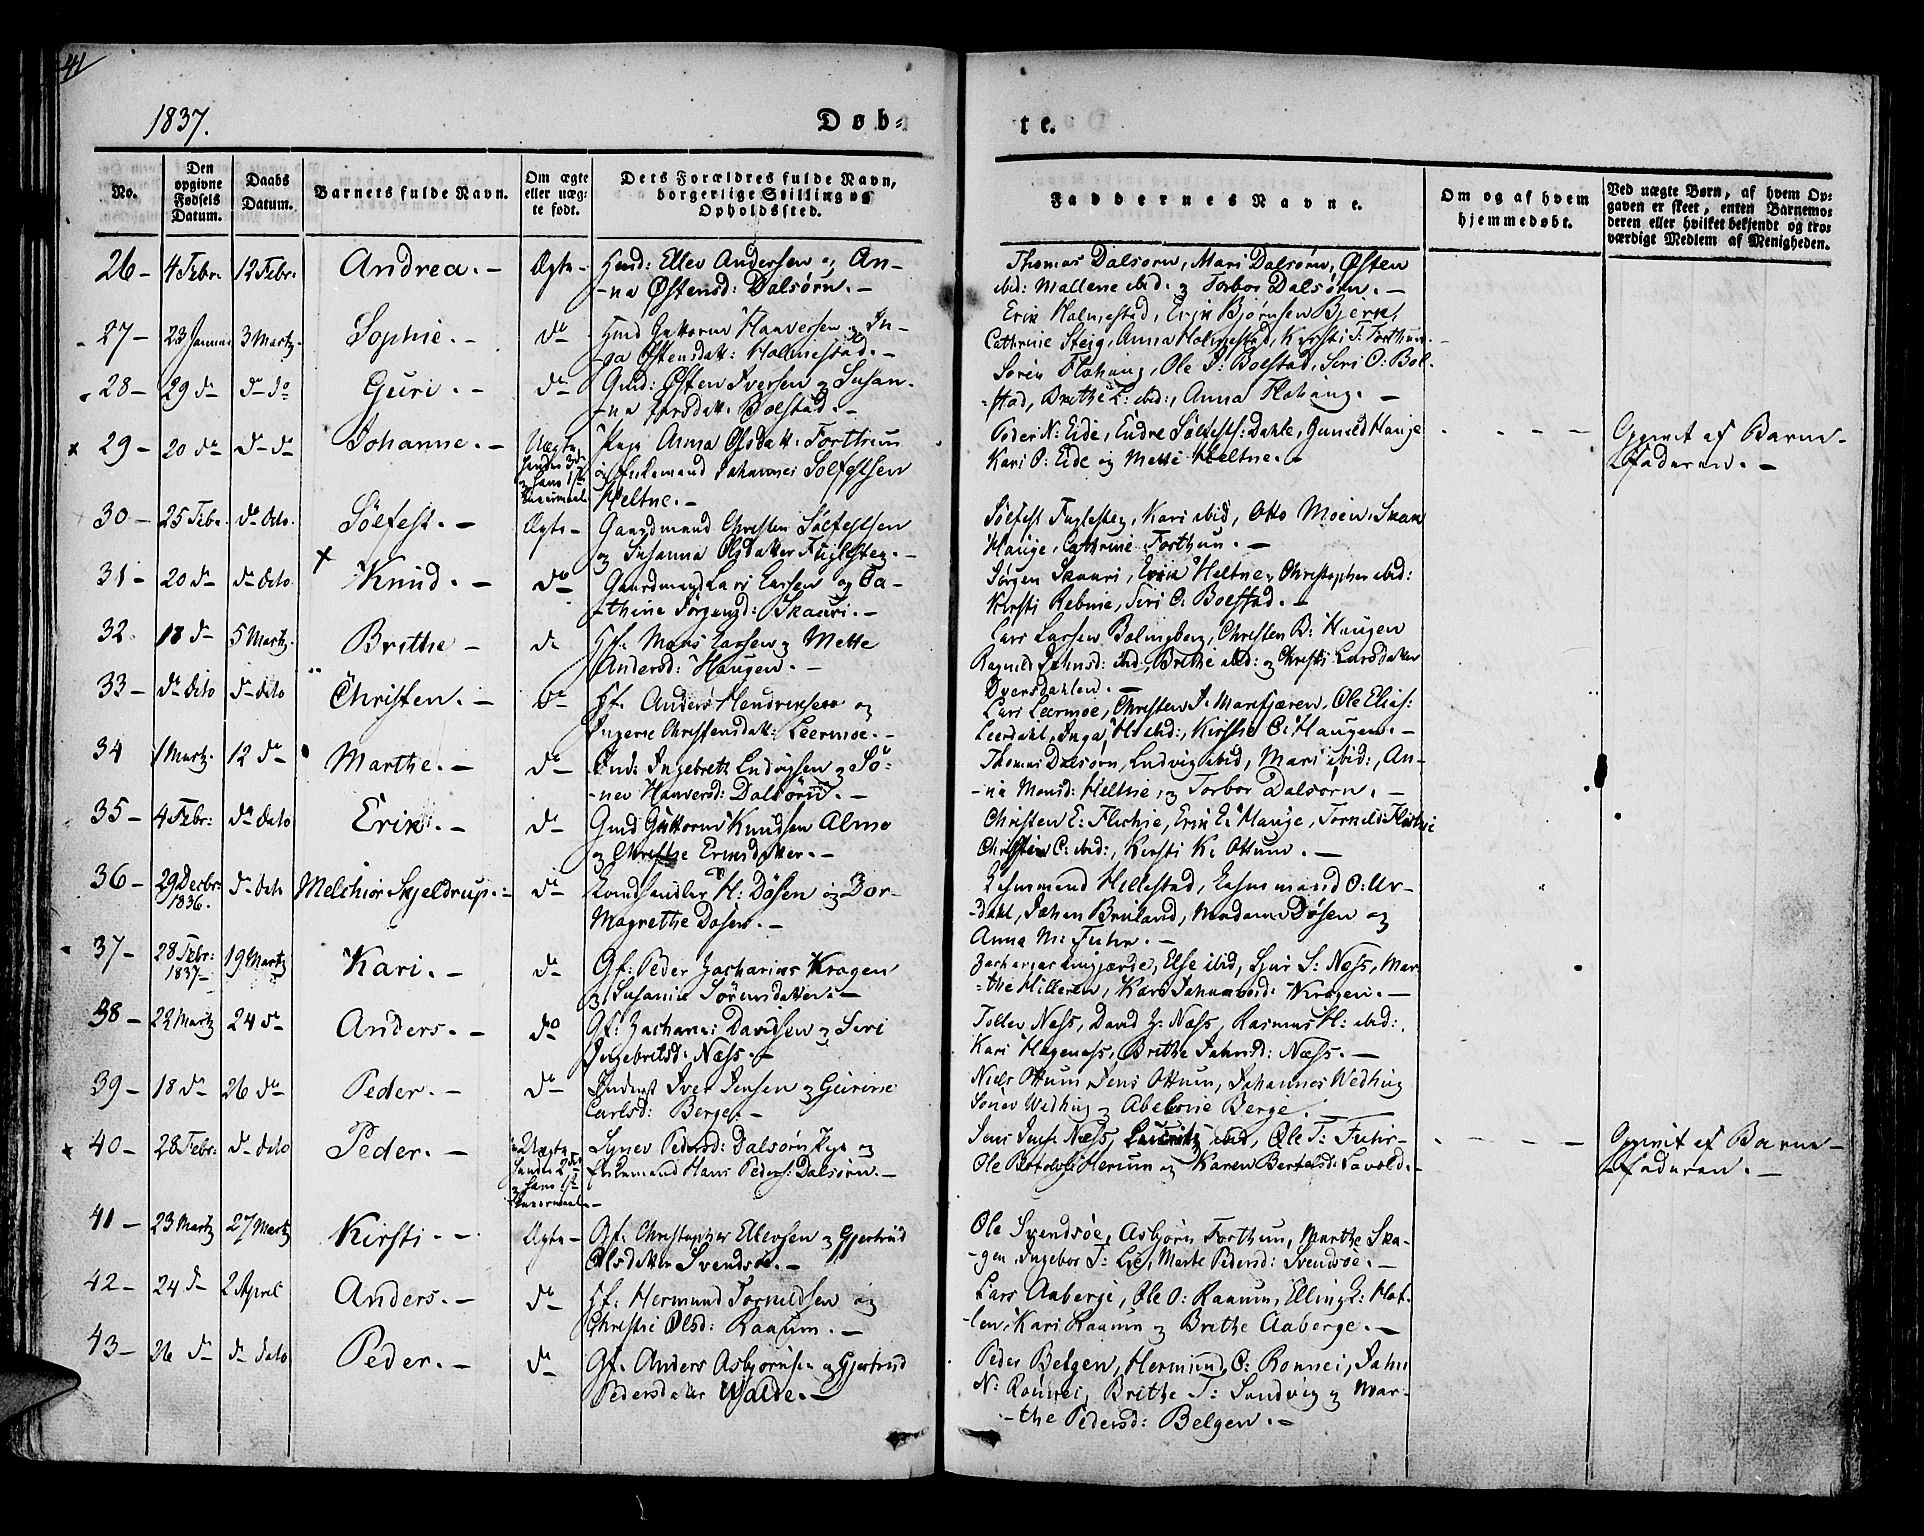 41
1837.
Døb-
te.
No.
Den opgivne Fødsels Datum.
Daabs Datum.
Barnets fulde Navn.
Om ægte eller uægte født.
Dets Forældres fulde Navn, borgerlige Stilling og Opholdssted.
Faddernes Navne.
Om og af hvem hjemmedøbt.
Ved uægte Børn, af hvem Opgaven er skeet, enten Barnemoderen eller hvilket bekjendt og troværdigt Medlem af Menigheden.
26 - 4 Febr. 12 Febr. Andrea. - Ægte - Hmd: Ellev Andersen og An-
-na Østensd: Dalsørn. -
Thomas Dalsørn, Mari Dalsørn, Østen
ibid: Mallene ibid. og Torbor Dalsørn. -
27 - 23 Januar 3 Martz - Sophie. - do Hmd Guttorm Haaversen og In-
-ga Østensdatt: Holmestad. -
Erik Holmestad, Erik Bjørnsen Bjerk,
Cathrine Steig, Anna Holmestad, Kirsti T: Forthun. -
28 - 29 do do do Guri. - do Gmd: Østen Iversen og Susan-
-na Datt. Bolstad. -
Søren Flahaug, Ole I: Bolstad, Siri O: Bol-
-stad, Brithe L: ibid:, Anna Flahaug. -
29 - 20 do do do Johanne. - Uægte
hendes 3die
og hans 1ste
Leiermaal
Pige Anna Olsdatt: Forthun
og Enkemand Johannes Sølfestsen
Heltne. -
Peder N: Eide, Endre Sølfests: Dahle, Gunild Hauge
Kari O: Eide og Mette Heltne. -
Opgivet af Barne-
faderen. -
30 - 25 Febr. do dito. Sølfest. - Ægte - Gaardmand Christen Sølfestsen
og Susanna Olsdatter Fuglesteg. -
Sølfest Fuglesteg, Kari ibid, Otto Moen,
Hauge, Cathrine Forthun. -
31 - 20 do do dito Knud. - do Gaardmand Lars Larsen og Ca-
-thrine Jørgensd: Skauri. -
Jørgen Skauri, Erik Heltne, Christopher ibid:
Kirsti Rebnie, Siri O: Bolstad. -
32. 18 do 5 Martz. Brithe - do Hf. Mons Larsen og Mette
Andersd: Haugen. -
Lars Larsen Bolmgberg, Christen B: Haugen
Ragnild Johnsd: ibid, Brithe ibid: og Christi Larsdatter
Dyersdahlen. -
33 - do dito do dito Christen. - do Hf. Anders Hendriksen og
Ingerie Christensdatt: Leermoe. -
Lars Leermoe, Christen I: Marifjæren, Ole Elias:
Leerdahl, Inga H: ibid:, Kirstie C: Haugen. -
34 1 Martz. 12 do Marthe. - do Ingebreth Ludvigsen og Sø-
-nev Haaversd: Dalsørn. -
Thomas Dalsørn, Ludvig ibid, Mari ibid:, An-
-na Monsd: Heltne, og Torbor Dalsørn. -
35 - 4 Febr: do dito Erik. - do Gmd Guttorm Knudsen Almo
og Christie Eriksdatter. -
Christen E: Flichie, Erik E: Hauge, Tornild: Flichie
Christen C: ibid:, Kirsti K: Ottum. -
36 - 29 Decbr:
1836. do dito Melchior Skjeldrup. - do Landhandler H: Døsen og Bor-
Magrethe Døsen. -
Lehnsmand Hillestad, Lehnsmand O: Ur-
-dahl, Johan Bruland, Madame Døsen og
Anna M: Fuhr. -
37 - 28 Febr:
1837 - 19 Martz Kari. - do Gf: Peder Zacharias Kragen
og Susanne Sørensdatter. -
Zacharias Lingjærde, Else ibid, Sjur S: Næss, Mar-
-the Hilleren, Kari Johannesd: Kragen. -
38 - 22 Martz 24 do Anders. - do Gf: Zacharias Davidsen og Siri
Ingebritsd: Næss. -
Tollev Næss, David Z: Næss, Rasmus H: ibid:
Kari Hageness, Brithe Johnsd: Næss. -
39 - 18 do 26 do Peder. - do Inderst Iver Jensen og Gurine
Carlsd: Berge. -
Niels Ottum Jens Ottum, Johannes Wedhiug
Sønev Wedhiug og Abelonie Berge. -
40 - 28 Febr: do dito Peder. - Uægte
hendes 2den
og hans 1ste
Leiermaal -
Synev Pedersd: Dalsørn Pige og
Enkemand Hans Peders: Dalsørn. -
Jens Næss, Lauritz ibid, Ole T: Fuhr-
Ole Botolvs: Herum og Karen Bertelsd: Savold. -
Opgivet af Barne-
faderen. -
41 - 23 Martz 27 Martz Kirsti - - Ægte - Gf. Christopher Ellevsen og Gjertrud
Olsdatter Svendsøe. -
Ole Svendsøe, Asbjørn Forthun, Marthe Ska-
-gen, Ingebor T: Lie, Marte Pedersd: Svendsøe. -
42 - 24 do 2 April Anders. - do Hf. Hermund Tornildsen og
Christie Olsd: Raaum. -
Lars Aaberge, Ole O: Raaum, Elling L: Mol-
-len, Kari Raaum og Brithe Aaberge. -
43 - 26 do do dito Peder. - do Gf. Anders Asbjørnsen og Gjertrud
Pedersdatter Walde. -
Peder Belgen, Hermund O: Rønnei, John
N: Rønnei, Brithe T: Sandvig og Mar-
-the Pedersd: Belgen. -